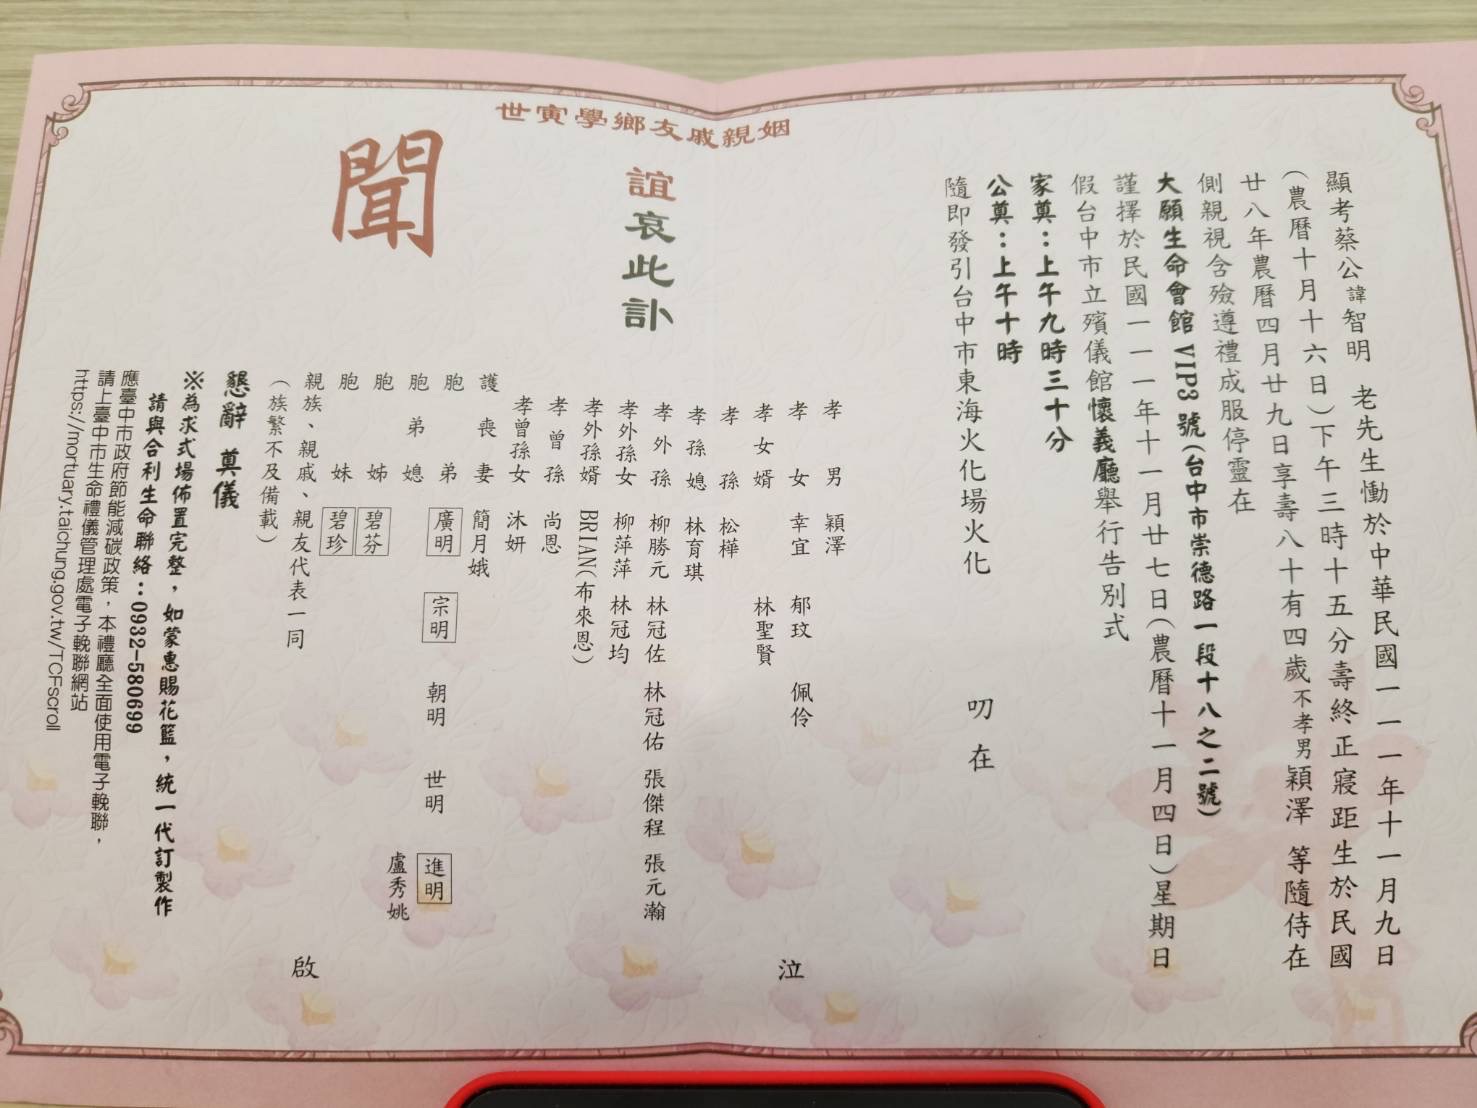 顯考蔡公諱智明 老先生慟於中華民國一一一年十一月九日
(農曆十月十六日)下午三時十五分壽終正寢距生於民國
廿八年農曆四月廿九日享壽八十有四歲不孝男穎澤 等隨侍在
側親視含殮遵禮成服停靈在
大願生命會館 VIP3 號(台中市崇德路一段十八之二號)
謹擇於民國一一一年十一月廿七日(農曆十一月四日)星期日
假台中市立殯儀館懷義廳舉行告別式
家奠:上午九時三十分
公奠:上午十時
隨即發引台中市東海火化場火化
叨在
姻親戚友鄉學寅世
誼哀此訃
聞
孝男 穎澤
孝女 幸宜 郁玟 佩伶
孝女婿 林聖賢
孝孫 松樺
孝孫媳 林育琪
孝外孫 柳勝元 林冠佐 林冠佑 張傑程 張元瀚
孝外孫女 柳萍萍 林冠均
孝外孫婿 BRIAN(布來恩)
孝曾孫 尚恩
孝曾孫女 沐妍
泣
護喪妻 簡月娥
胞弟 廣明 宗明 朝明 世明 進明
胞弟媳 盧秀姚
胞姊 碧芬
胞妹 碧珍
親族、親戚、親友代表一同
(族繁不及備載)
啟
懇辭 奠儀
※為求式場佈置完整,如蒙惠賜花籃,統一代訂製作
請與合利生命聯絡:0932-580699
應臺中市政府節能減碳政策,本禮廳全面使用電子輓聯,
請上臺中市生命禮儀管理處電子輓聯網站
https://mortuary.taichung.gov.tw/TCFscroll